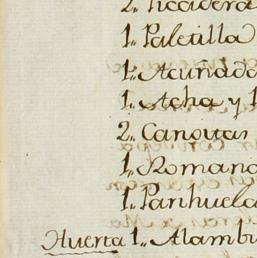 2,, Picadera
1,, Paletilla
1,, Acuñado
1,, Acha y 1
2,, Canoitas
1,, Romano
1,, Parihuela
Huerta 1,, Alambi